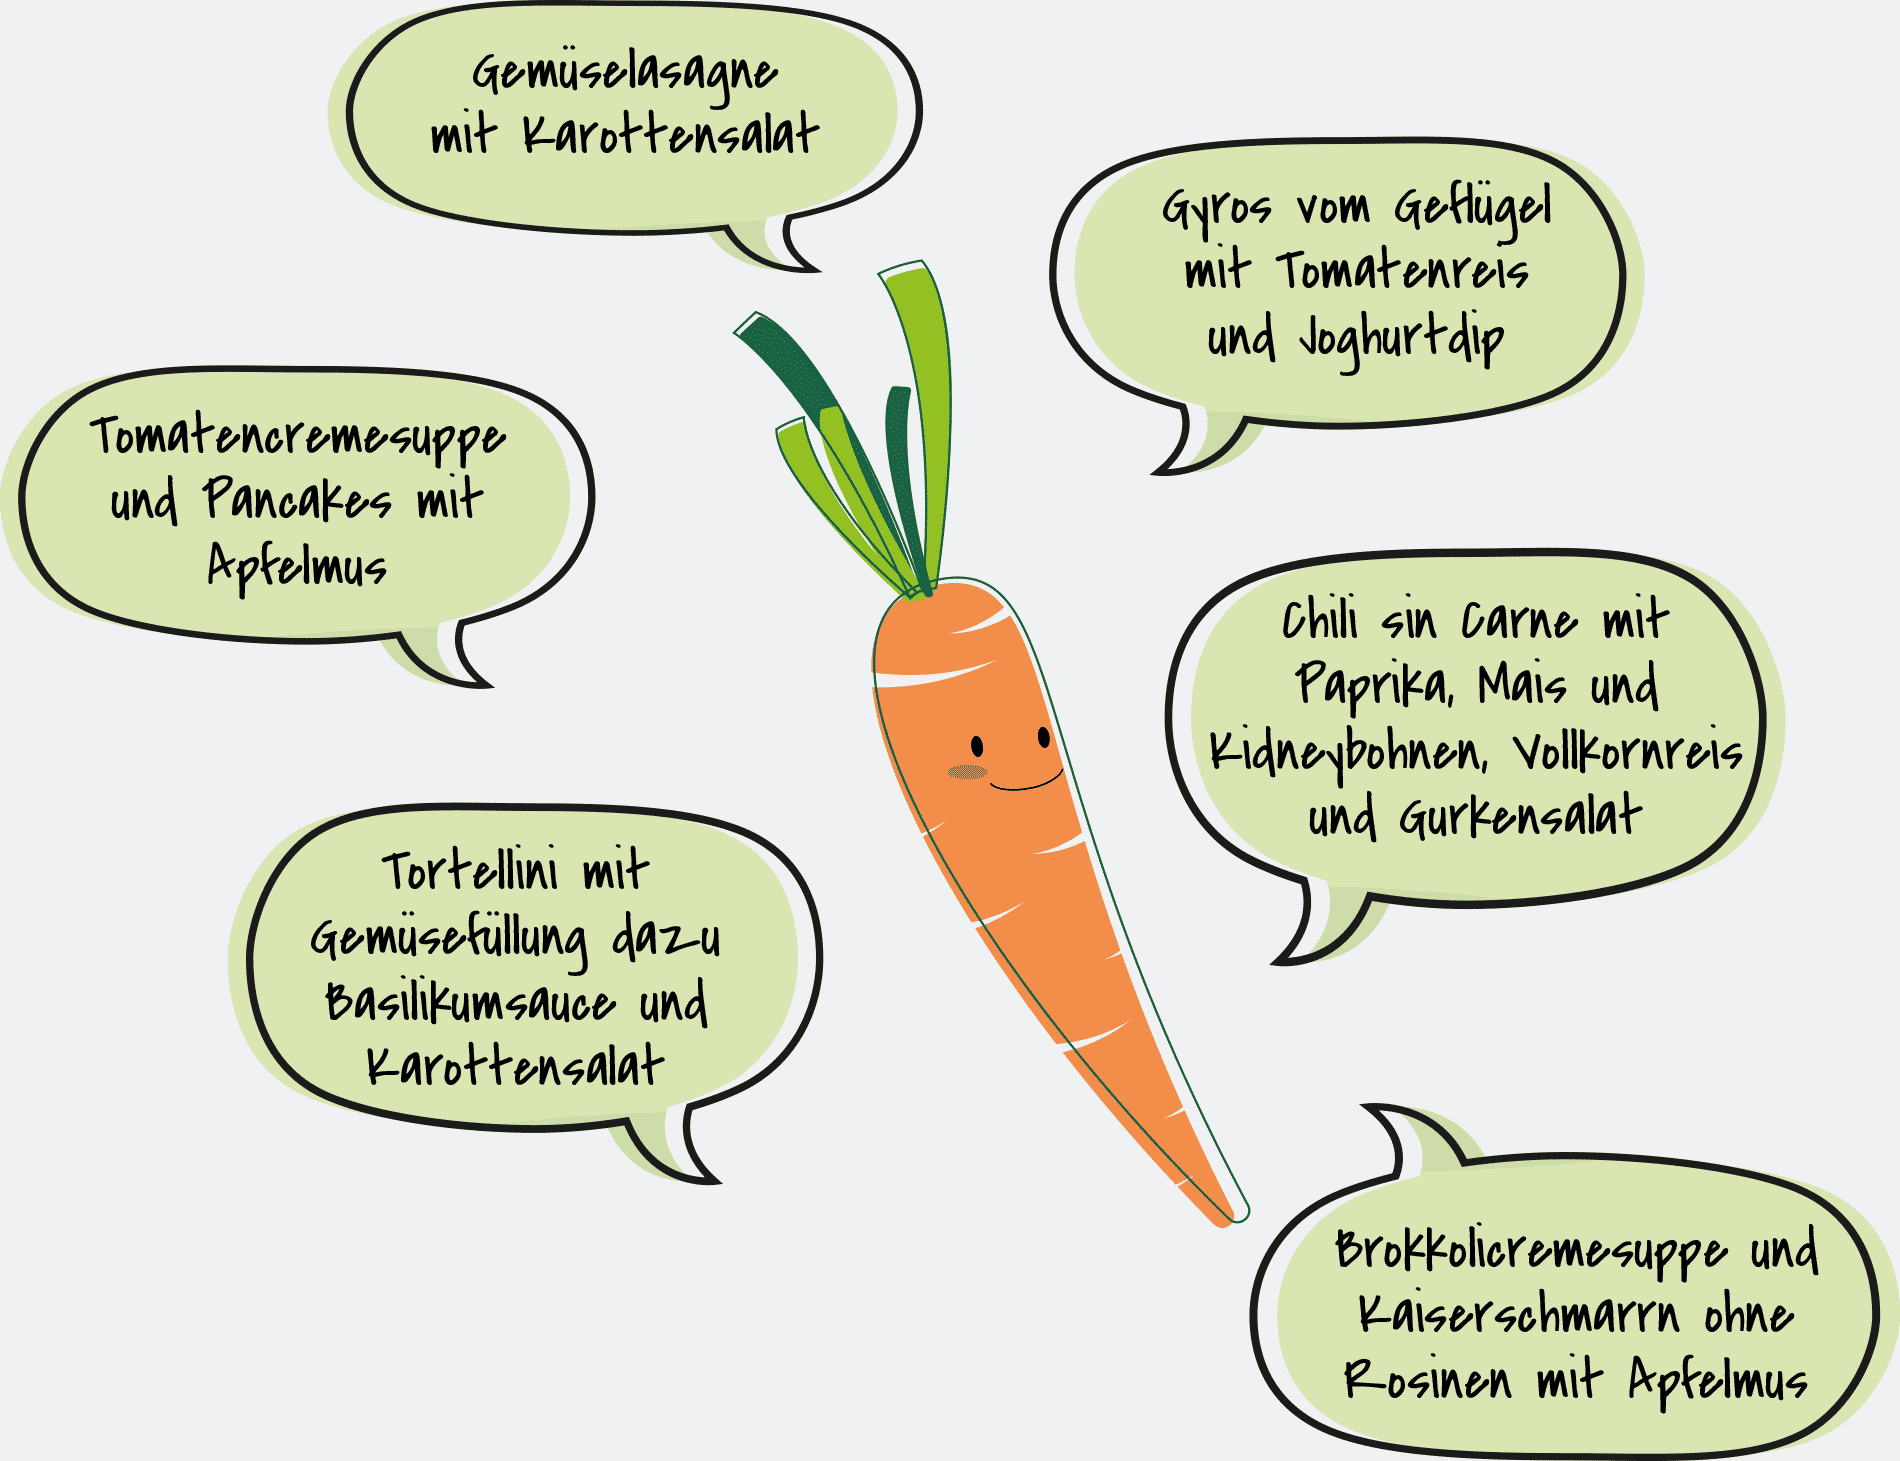 Gemüselasagne
mit Karottensalat
Gyros vom Geflügel
mit Tomatenreis
und Joghurtdip
Tomatencremesuppe
und Pancakes mit
Apfelmus
Chili sin Carne mit
Paprika, Mais und
Kidneybohnen, Vollkornreis
und Gurkensalat
Tortellini mit
Gemüsefüllung dazu
Basilikumsauce und
Karottensalat
Brokkolicremesuppe und
Kaiserschmarrn ohne
Rosinen mit Apfelmus